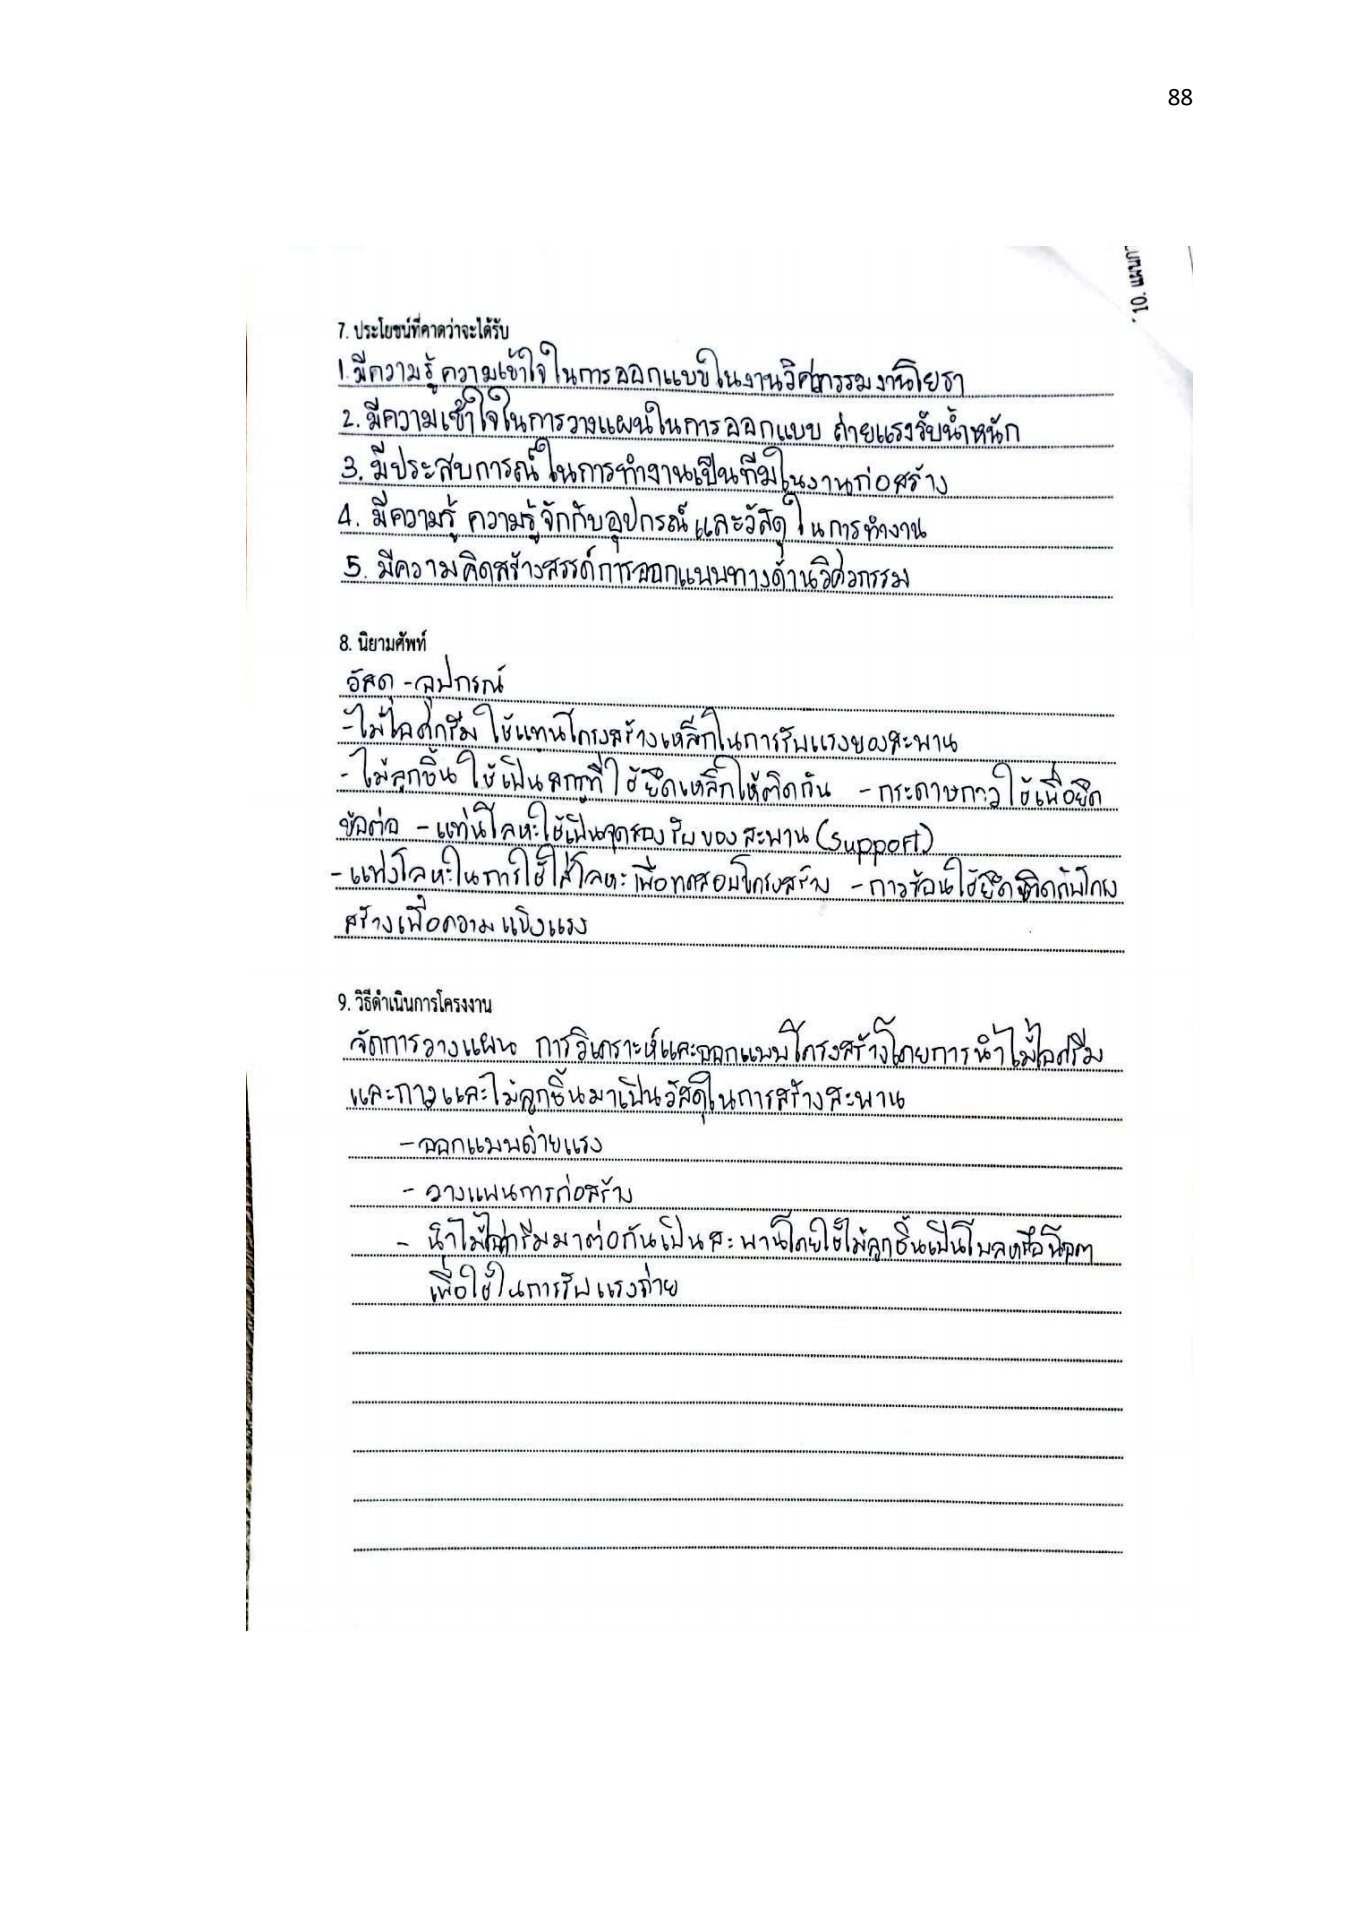 88
10. แผน
7. ประโยชน์ที่คาดว่าจะได้รับ
1. มีความรู้ ความเข้าใจในการออกแบบในงานวิศวกรรมงานโยธา
2. มีความเข้าใจในการวางแผนในการออกแบบ ถ่ายแรงรับน้ำหนัก
3. มีประสบการณ์ในการทำงานเป็นทีมในงานก่อสร้าง
4. มีความรู้ ความรู้จักกับอุปกรณ์ และวัสดุในการทำงาน
5. มีความคิดสร้างสรรค์การออกแบบทางด้านวิศวกรรม
8. นิยามศัพท์
วัสดุ - อุปกรณ์
- ไม้ไอศกรีม ใช้แทนโครงสร้างเหล็กในการรับแรงของสะพาน
- ไม้ลูกชิ้น ใช้เป็นสกรูที่ใช้ยึดเหล็กให้ติดกัน - กระดาษกาวใช้เพื่อยึด
ข้อต่อ - แท่นโลหะใช้เป็นจุดรองรับของสะพาน (Support)
- แท่งโลหะในการใช้ใส่โลหะเพื่อทดสอบโครงสร้าง - กาวร้อนใช้ยึดติดกับโครง
สร้างเพื่อความแข็งแรง
9. วิธีดำเนินการโครงงาน
จัดการวางแผน การวิเคราะห์และออกแบบโครงสร้างโดยการนำไม้ไอศครีม
และกาวและไม้ลูกชิ้นมาเป็นวัสดุในการสร้างสะพาน
- ออกแบบถ่ายแรง
- วางแผนการก่อสร้าง
- นำไม้ไอศกรีมมาต่อกันเป็นสะพานโดยใช้ไม้ลูกชิ้นเป็นโบลทหรือน็อต
เพื่อใช้ในการรับแรงถ่าย